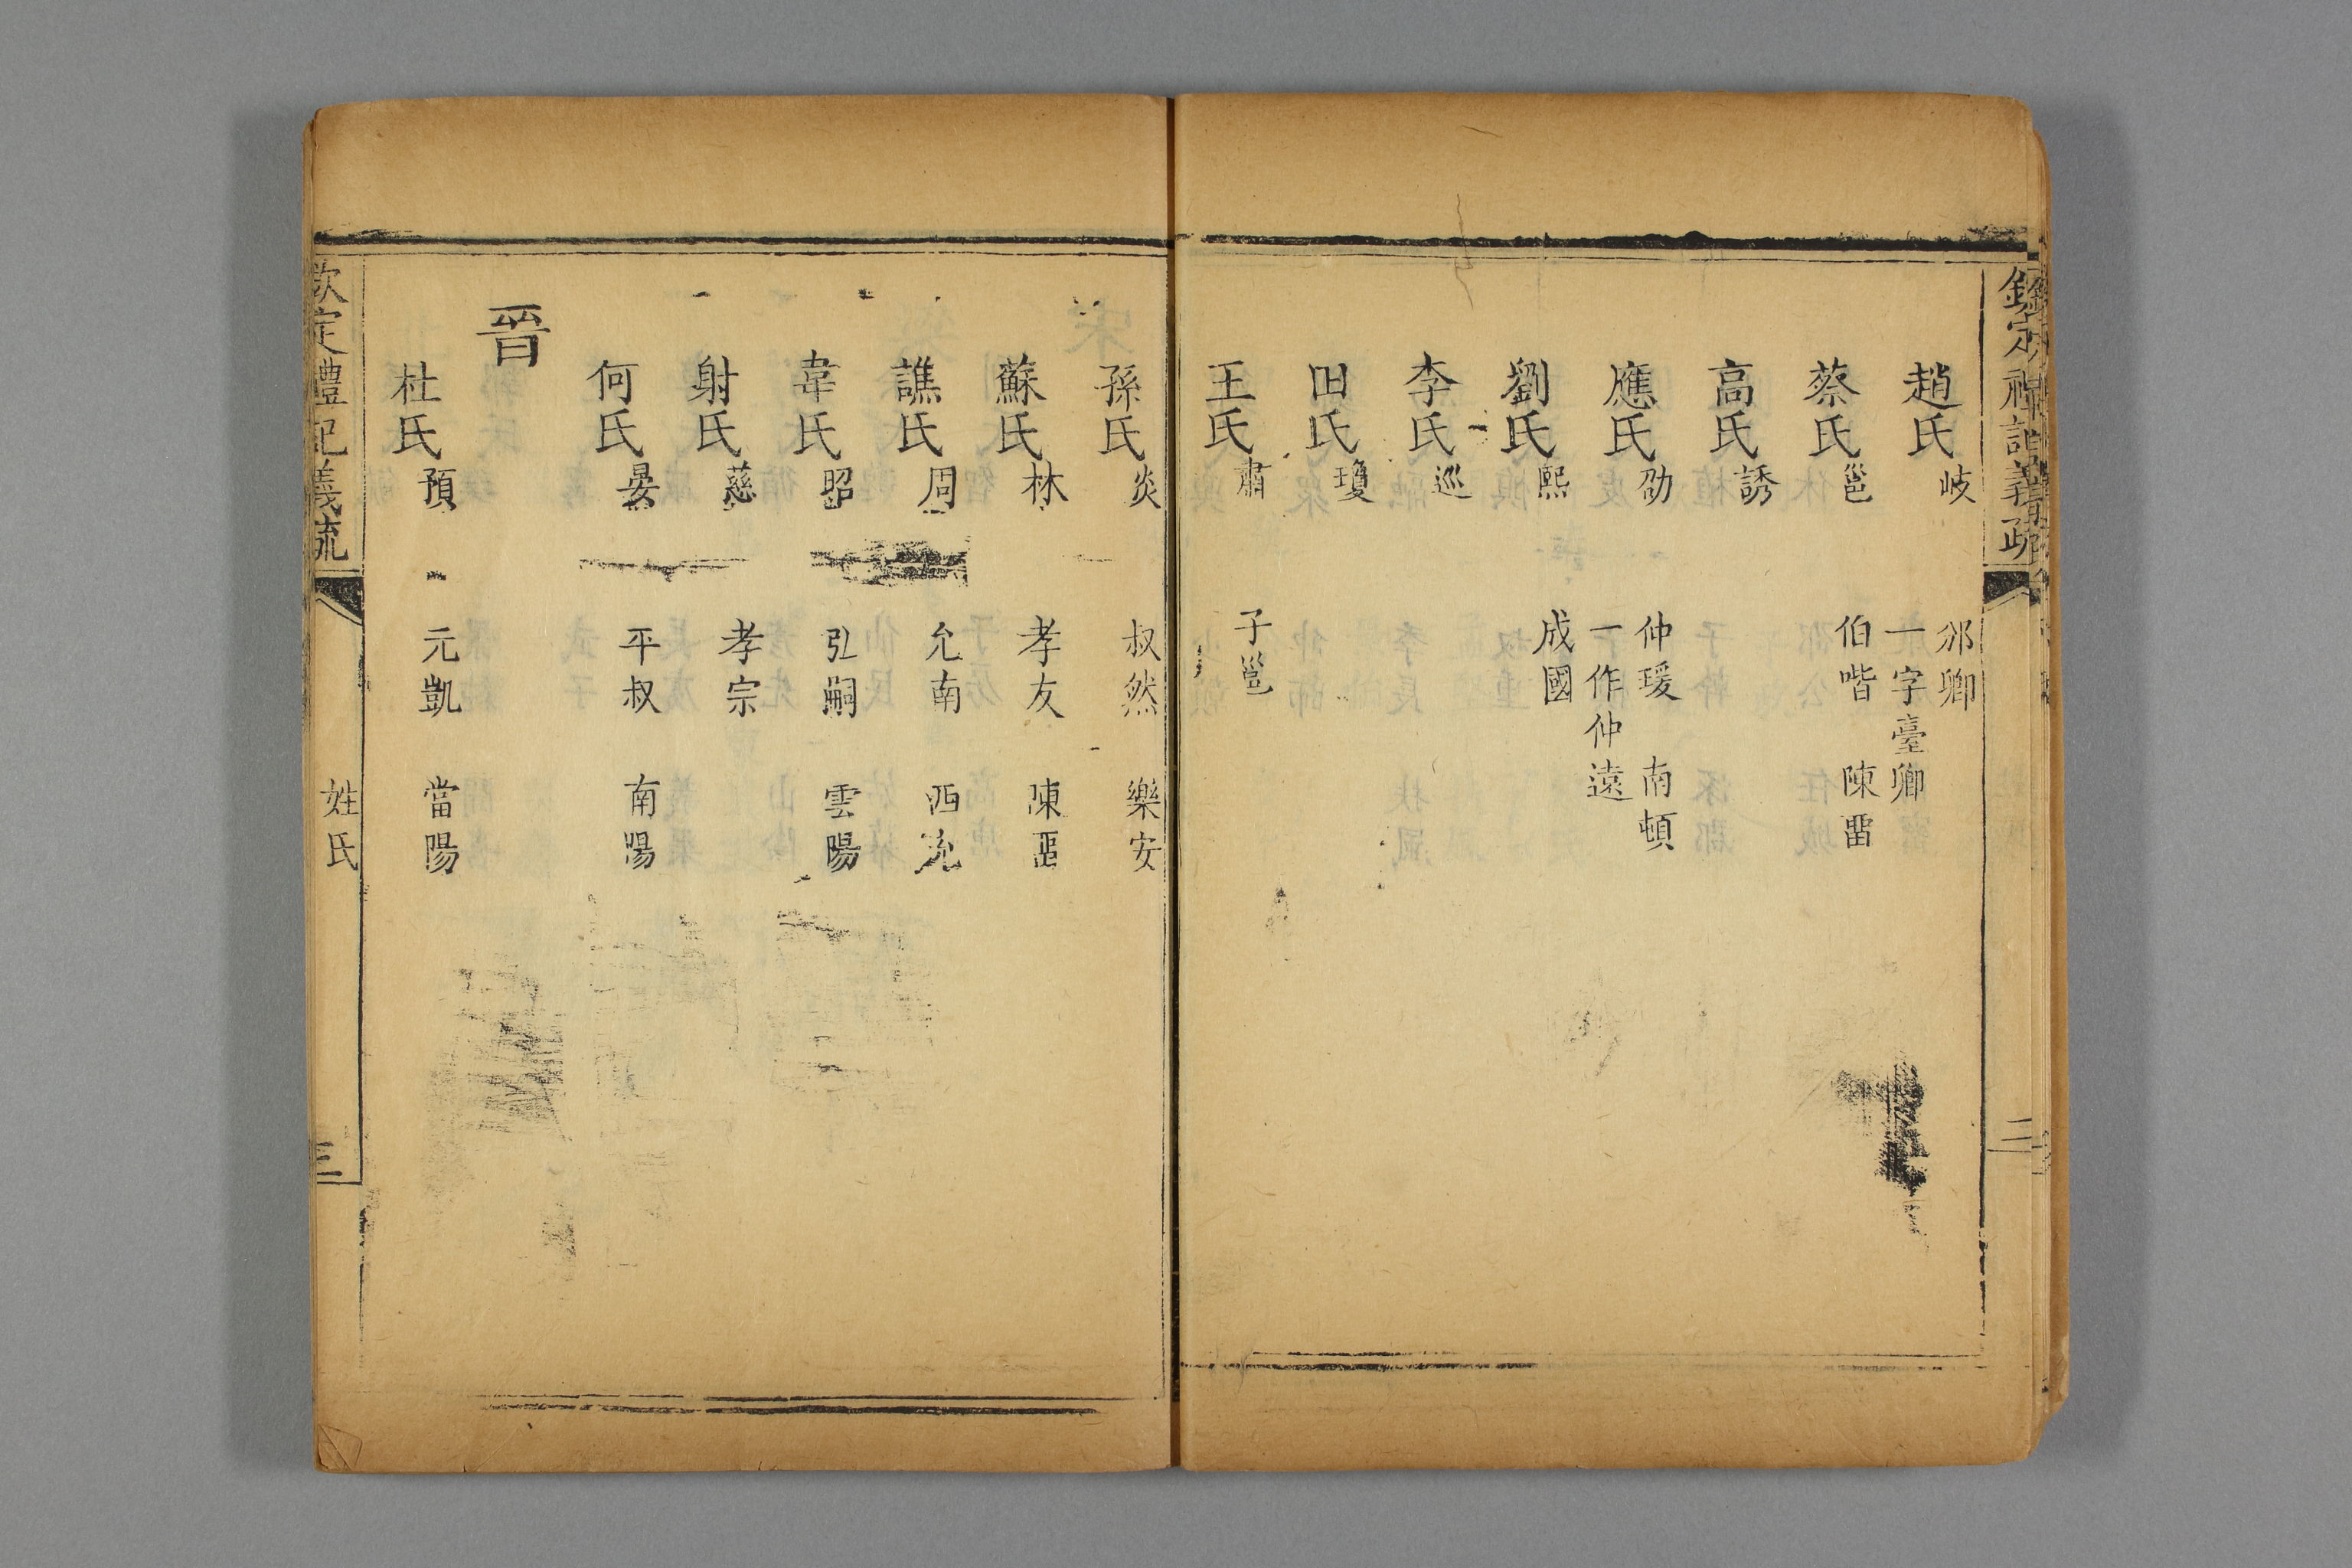 欽定禮記義疏
二
趙氏岐 邠卿
一字臺卿
蔡氏邕 伯喈 陳畱
高氏誘
應氏劭 仲瑗 南頓
一作仲遠
劉氏熙 成國
李氏巡
田氏瓊
王氏肅 子邕
孫氏炎 叔然 樂安
蘇氏林 孝友 陳畱
譙氏周 允南 西充
韋氏昭 弘嗣 雲陽
射氏慈 孝宗
何氏晏 平叔 南陽
晉
杜氏預 元凱 當陽
欽定禮記義疏 姓氏 三